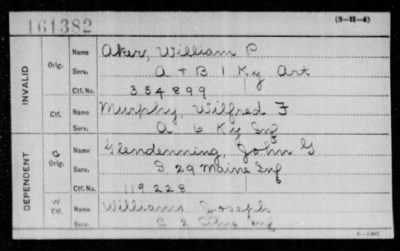 161382
(3-11-4)
INVALID
Orig.
Name Aker, William P
Serv. A + B 1 Ky Art
Ctf. No. 354899
Ctf.
Name Murphy, Wilfred F
Serv. A 6 Ky Inf
DEPENDENT
C Orig.
Name Glendenning, John G
Serv. I 29 Maine Inf
Ctf. No. 119228
W Ctf.
Name Williams Joseph
Serv.